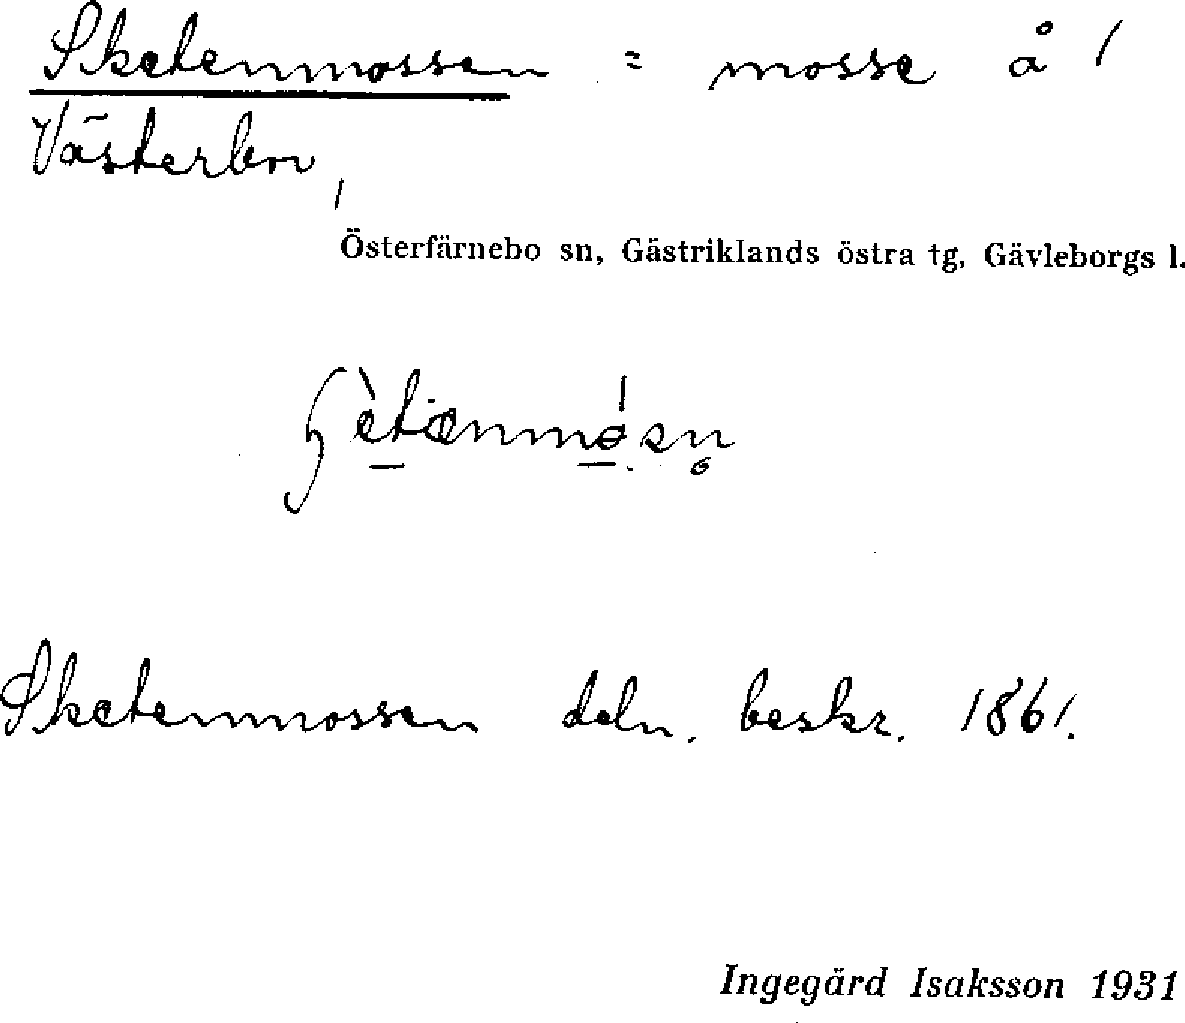 Sketenmossen = mosse å /
Västerbo,
Österfärnebo sn, Gästriklands östra tg, Gävleborgs l.
Sketenmossen deln. beskr. 1861.
Ingegärd Isaksson 1931